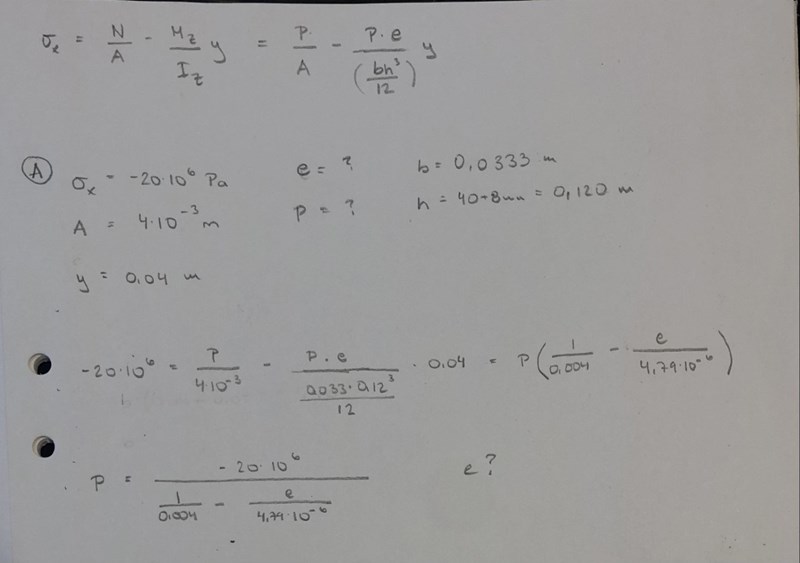 σx = N/A - Mz/Iz y = P/A - P·e/(bh³/12) y
A σx = -20·10⁶ Pa e = ? b = 0,0333 m
A = 4·10⁻³ m P = ? h = 40+8mm = 0,120 m
y = 0,04 m
-20·10⁶ = P/4·10⁻³ - P·e/(0,033·0,12³/12) · 0,04 = P(1/0,004 - e/4,79·10⁻⁶)
P = -20·10⁶/(1/0,004 - e/4,79·10⁻⁶) e?